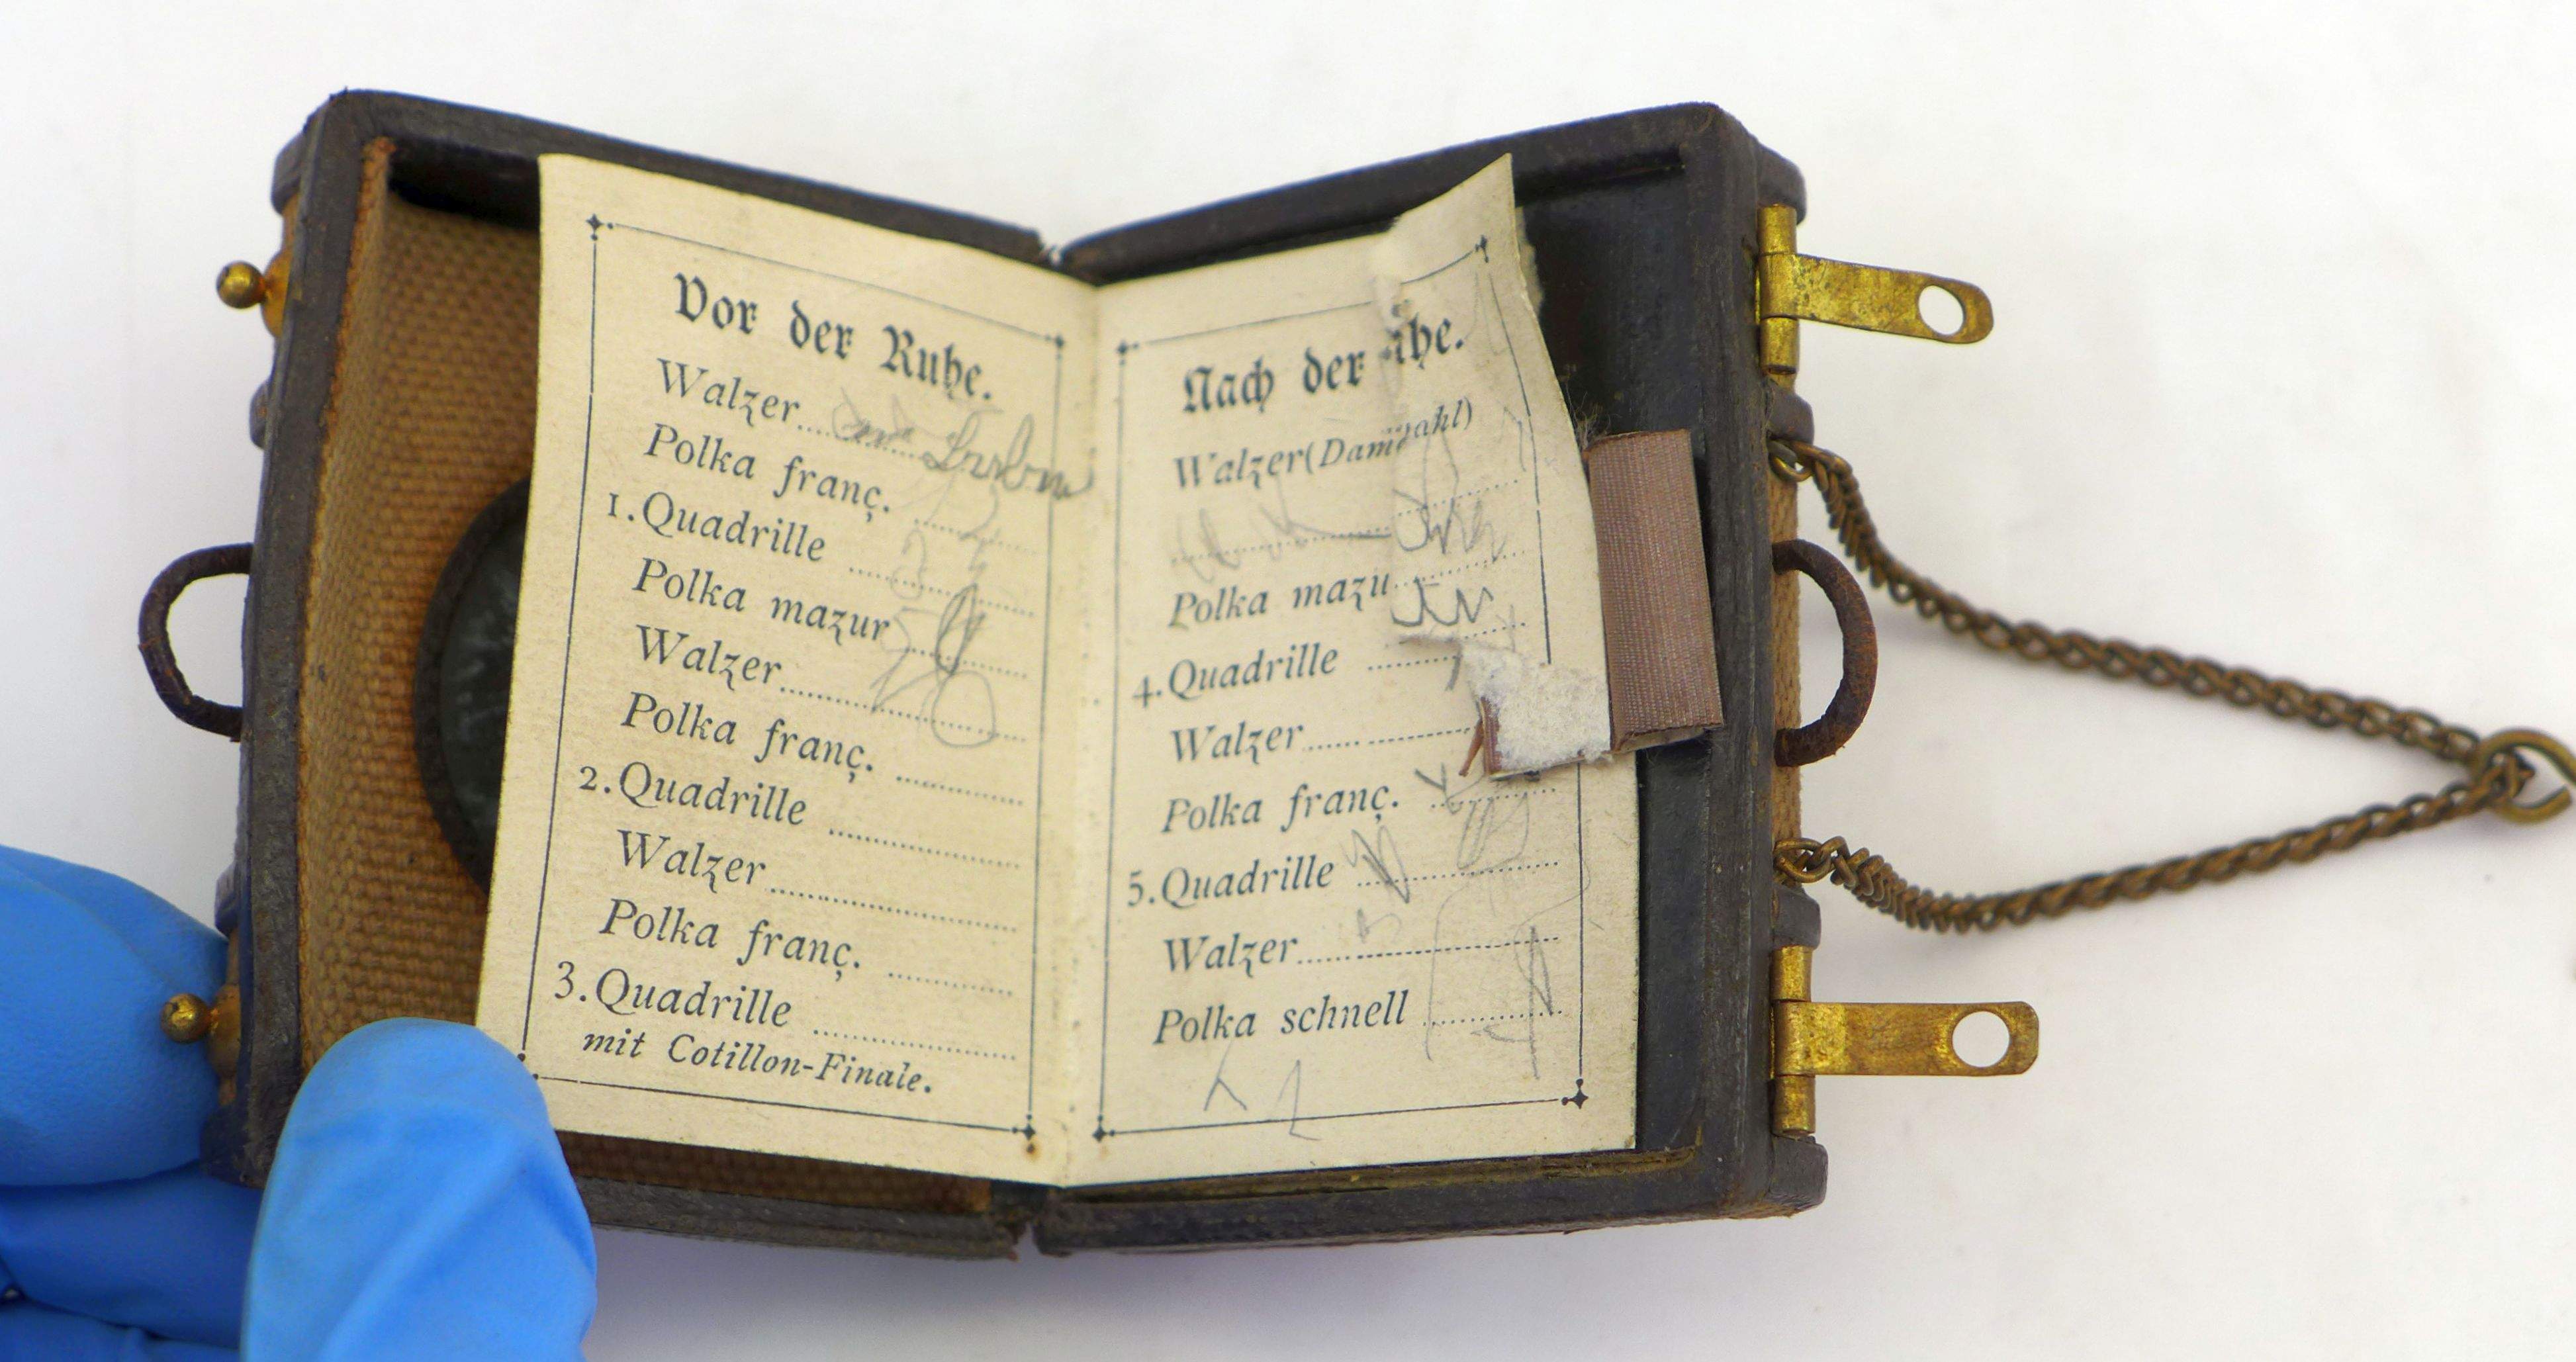 Vor der Ruhe.
Walzer
Polka franç.
1. Quadrille
Polka mazur
Walzer
Polka franç.
2. Quadrille
Walzer
Polka franç.
3. Quadrille
mit Cotillon-Finale.
Nach der uhe.
Walzer (Dam ahl)
Polka mazu
4. Quadrille
Walzer
Polka franç.
5. Quadrille
Walzer
Polka schnell